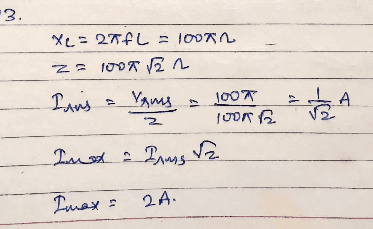 3.
XL = 2πfL = 100πΩ
Z = 100π √2 Ω
Irms = Vrms / Z = 100π / 100π√2 = 1/√2 A
Imax = Irms √2
Imax = 2A.